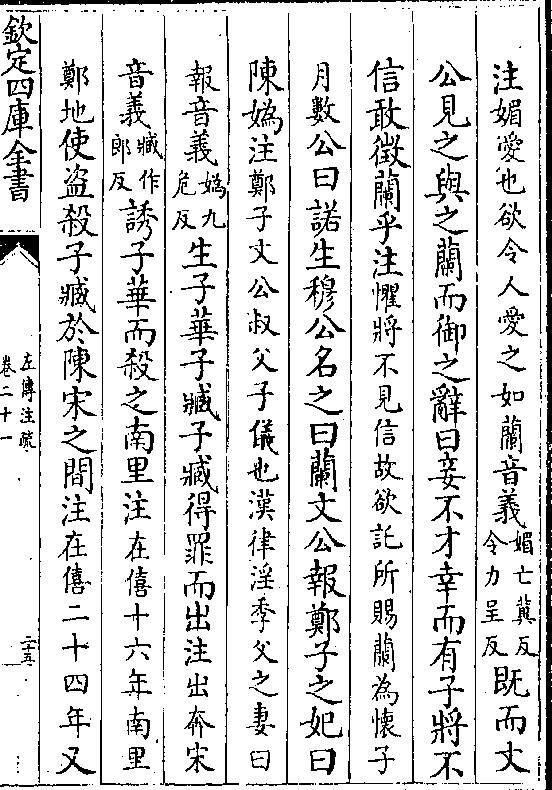 注媚愛也欲令人愛之如蘭音義媚亡冀反令力呈反既而文
公見之與之蘭而御之辭曰妾不才幸而有子將不
信敢徴蘭乎注懼將不見信故欲託所賜蘭為懷子
月數公曰諾生穆公名之曰蘭文公報鄭子之妃曰
陳媯注鄭子文公叔父子儀也漢律淫季父之妻曰
報音義媯九危反生子華子臧子臧得罪而出注出奔宋
音義臧作郎反誘子華而殺之南里注在僖十六年南里
鄭地使盜殺子臧於陳宋之間注在僖二十四年又
欽定四庫全書
左傳注疏
卷二十一
二十五